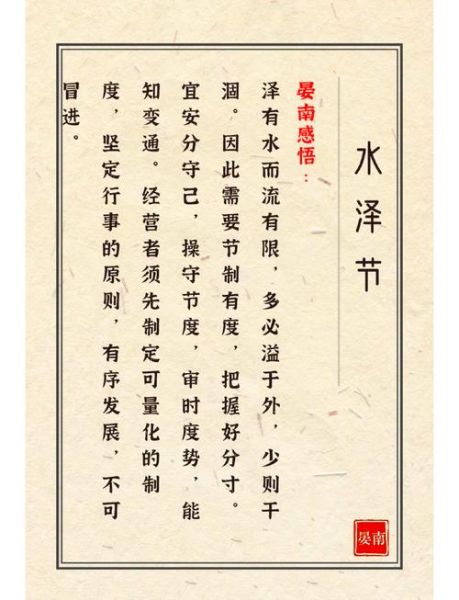 水泽节
晏南感悟：
泽有水而流有限，多必溢于外，少则干
涸。因此需要节制有度，把握好分寸。
宜安分守己，操守节度，审时度势，能
知变通。经营者须先制定可量化的制
度，坚定行事的原则，有序发展，不可
冒进。
晏南